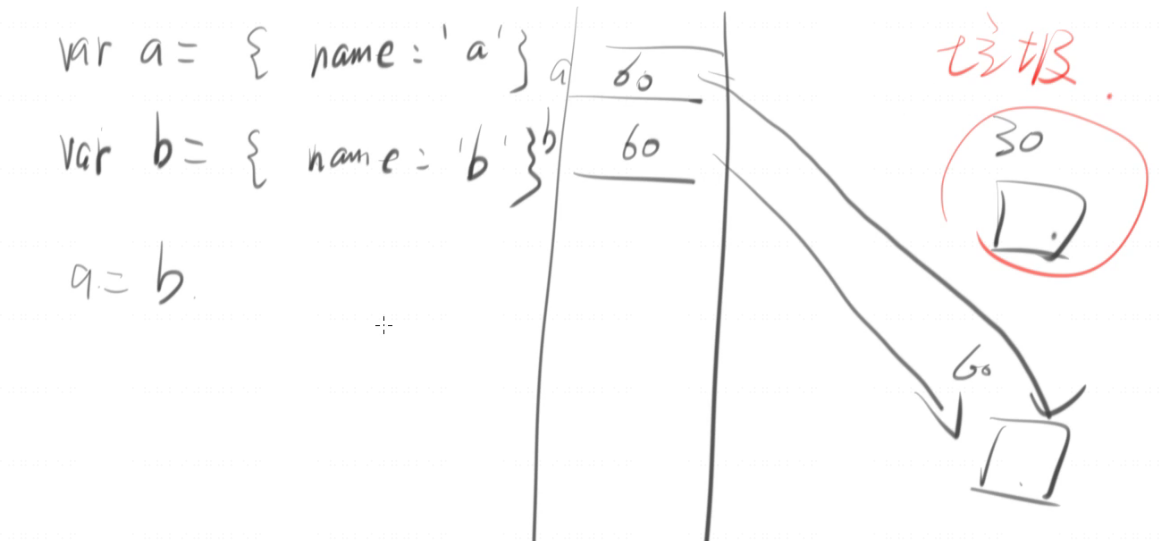 var a = { name : 'a' }
var b = { name : 'b' }
a = b
a 60
b 60
垃圾.
30
60